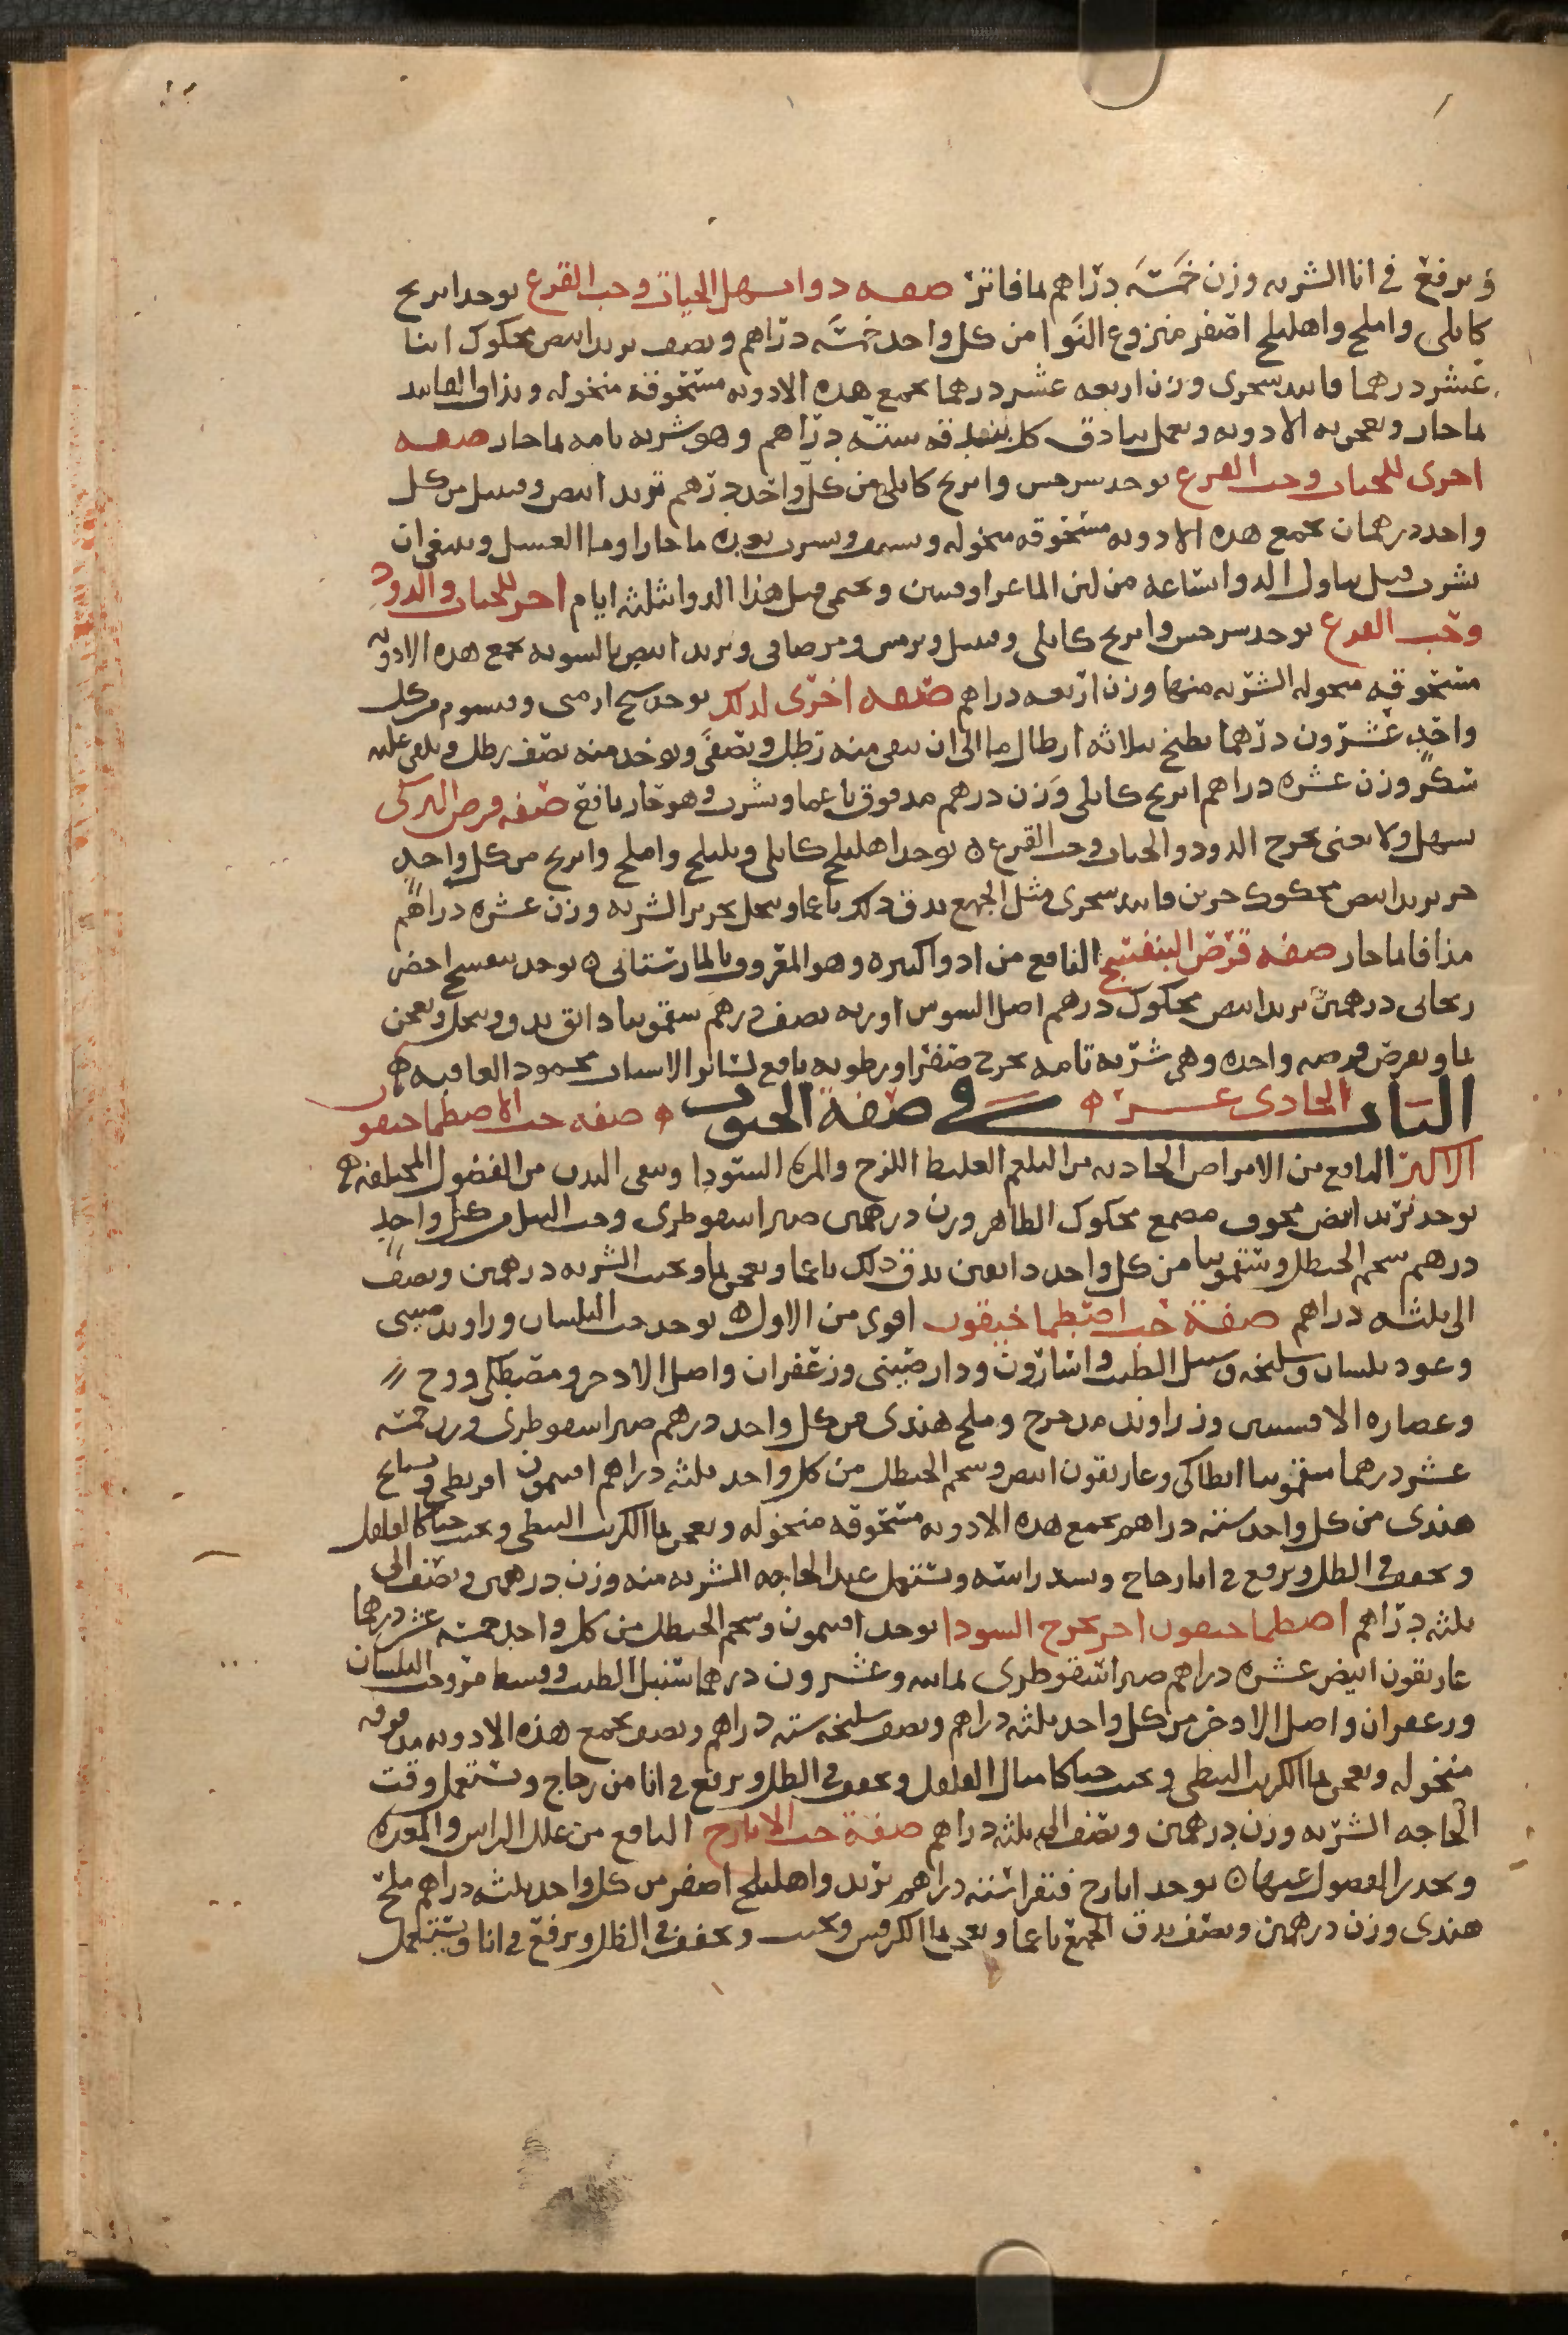 ويرفع في انا الشربه وزن خمسَه دراهم بما فاتر صفه دوا يسهل الحيات وحب القرع يوخد ابرنج
كابلى واملج واهليلج اصفر منزوع النَوا من كل واحد خمسَه دراهم ونصف تربد ابيض محكوك اثنا
عشر درهما فانيد سجرى وزن اربعه عشر درهما يجمع هده الادويه مسحوقه منخوله ويذاف الفانيد
بما حار ويعجن به الادويه ويعمل بنادق كل بندقه ستّه دراهم وهو شربه تامه بما حار صفه
اخرى للحيات وحب القرع يوخد سرخس وابرنج كابلى من كل واحد درهم تربد ابيض وقنبيل من كل
واحد درهمان يجمع هده الادويه مسحوقه منخوله ويشرب بما حار او ما العسل وينبغى ان
يشرب قبل تناول الدوا بساعه من لبن الماعز اوقيتين ويحمى قبل هذا الدوا ثلثه ايام اخر للحيات والدود
وحب القرع يوخد سرخس وابرنج كابلى وقنبيل وترمس ومر صافى وتربد ابيض بالسويه يجمع هده الادويه
مسحوقه منخوله الشربه منها وزن اربعه دراهم صفه اخرى لدلك يوخد شيح ارمنى وقيسوم من كل
واحدٍ عشرون درهما يطبخ بثلاثه ارطال ما الى ان يبقى منه رطل ويصفَّى ويوخد منه نصف رطل ويلقى عليه
سكر وزن عشره دراهم ابرنج كابلى وَزن درهم مدقوق ناعما ويشرب وهو حار نافع صفه قرص البرنكى
سهل ولا يعنى يخرج الدود والحيات وحب القرع ه يوخد اهليلج كابلى وبليلج واملج وابرنج من كل واحدٍ
جز تربد ابيض محكوك جزين فانيد سجرى مثل الجميع يدق دلك ناعما وينخل بحرير الشربه وزن عشره دراهم
مذافا بما حار صفه قرص البنفسج النافع من ادوا كثيره وهو المعروف بالمارستانى ه يوخد بنفسج اخضر
ريحانى درهمين تربد ابيض محكوك درهم اصل السوس اوربه نصف درهم سقمونيا دانق يدق وينخل ويعجن
بما ويقرص قرصه واحده وهى شربه تامه يخرج صفرا ورطوبه نافع لسائر الاسنان محمود العاقبه ه
الباب الحادى عشر ه في صفة الحبوب ه صفه حب الاصطماخيقون
الاكبر النافع من الامراض الحاديه من البلغم الغليظ اللزج والمره السودا وينقى البدن من الفضول المختلفه ه
يوخد تربد ابيض مجوف مصمغ محكوك الظاهر وزن درهمين صبر اسقوطرى وحب النيل من كل واحدٍ
درهم شحم الحنظل وسقمونيا من كل واحد دانقين يدق دلك ناعما ويعجن بما ويحبب الشربه درهمين ونصف
الى ثلثه دراهم صفة حب اصطماخيقون اقوى من الاول ه يوخد حب البلسان وراوند صينى
وعود بلسان وسليخه وسنبل الطيب واسارون ودارصينى وزعفران واصل الادخر ومصطكى ووج
وعصاره الافسنتين وزراوند مدحرج وملح هندى من كل واحد درهم صبر اسقوطرى وزن خمسه
عشر درهما سقمونيا انطاكى وغاريقون ابيض وشحم الحنظل من كل واحد ثلثه دراهم افتيمون اقريطى وبسفايج
هندى من كل واحد سته دراهم يجمع هده الادويه مسحوقه منخوله ويعجن بما الكرنب النبطى ويحبب حباً كالفلفل
ويجفف في الظل ويرفع في انا زجاج ويسد راسه ويستعمل عند الحاجه الشربه منه وزن درهمين ونصف الى
ثلثه دراهم اصطماخيقون اخر يخرج السودا يوخد افتيمون وشحم الحنظل من كل واحد خمسه عشر درهما
غاريقون ابيض عشره دراهم صبر اسقوطرى ثمانيه وعشرون درهما سنبل الطيب وقسط مر وحب البلسان
وزعفران واصل الادخر من كل واحد ثلثه دراهم ونصف سليخه سته دراهم ونصف يجمع هذه الادويه مدقوقه
منخوله ويعجن بما الكرنب النبطى ويحبب حبا كامثال الفلفل ويجفف في الظل ويرفع في انا من زجاج ويستعمل وقت
الحاجه الشربه وزن درهمين ونصف الى ثلثه دراهم صفة حب الايارج النافع من علل الراس والمعده
ويحدر الفضول عنها ه يوخد ايارج فيقرا سته دراهم تربد واهليلج اصفر من كل واحد ثلثه دراهم ملح
هندى وزن درهمين ونصف يدق الجميع ناعما ويعجن بما الكرفس ويحبب ويجفف في الظل ويرفع في انا ويستعمل